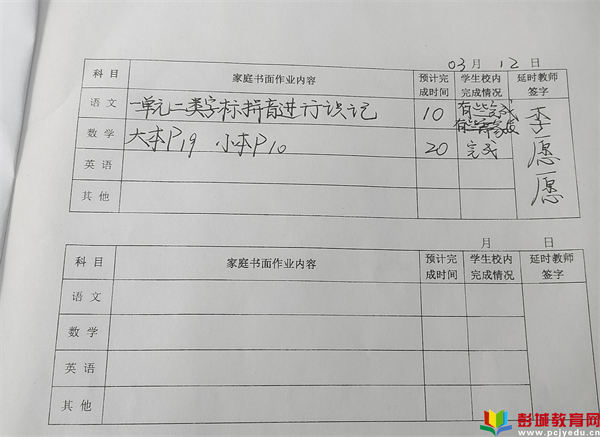 03月12日
科目 家庭书面作业内容 预计完成时间 学生校内完成情况 延时教师签字
语文 一单元二类字标拼音进行误记 10 有些完成
数学 大本P19 小本P10 20 完成
英语
其他
李愿愿
月 日
科目 家庭书面作业内容 预计完成时间 学生校内完成情况 延时教师签字
语文
数学
英语
其他
彭城教育网
www.pcjyedu.cn